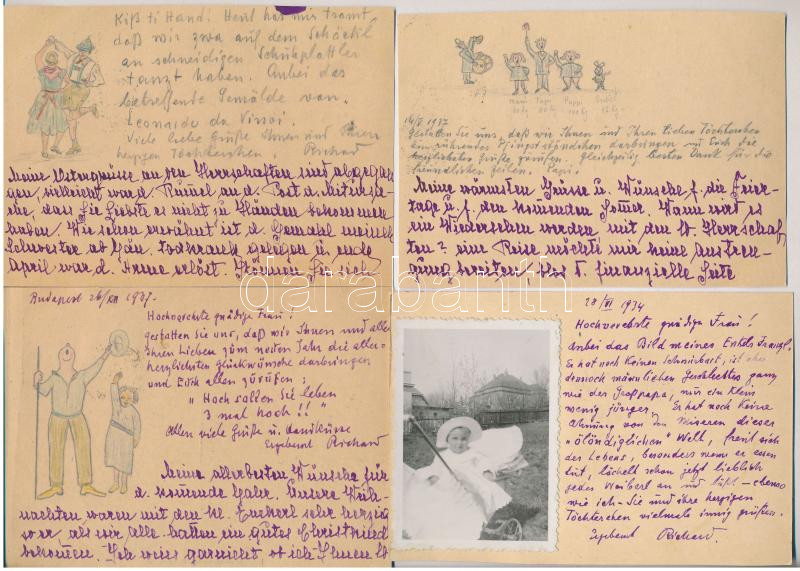 Küß di Hand! Heut hat mir tramt
daß wir zwa auf dem Schöckl
an schneidigen Schuhplattler
tanzt haben. Anbei das
betreffende Gemälde von
Leonardo da Vinci.
Viele liebe Grüße Ihnen und Ihren
herzigen Töchterchen Richard
Meine Ostergrüsse an den Herrschaften sind abgegan-
gen, vielleicht war d. Rummel an d. Post d.
dass Sie Liebste es nicht zu Händen bekommen
haben. Wie schon erwähnt ist d. Gemahl meiner
Schwester ab Jän. todkrank gelegen u. ende
April war d. Arme erlöst. Können Sie sich
Mami Papi Puppi
14/V 1937
Gestatten Sie uns, daß wir Ihnen und Ihren lieben Töchterchen
ein rührendes Pfingstständchen darbringen und Euch die
herzlichsten Grüße zurufen. Gleichzeitig besten Dank für die
freundlichen Zeilen. Papi.
Meine wärmsten Grüsse u. Wünsche f. die Feier-
tage u. f. den kommenden Somer. Wann wird es
ein Wiedersehen werden mit den lb. Herrschaf-
ten? eine Reise möchte mir keine Anstren-
gung bereiten, blos d. finanzielle Seite
Budapest 26/XII 1937.
Hochverehrte gnädige Frau!
gestatten Sie uns, daß wir Ihnen und allen
Ihren Lieben zum neuen Jahr die aller-
herzlichsten Glückwünsche darbringen
und Euch allen zurufen:
"Hoch sollen Sie leben
3 mal hoch!!"
Allen viele Grüße u. Handküsse
Ergebenst Richard
Meine allerbesten Wünsche für
d. kommende Jahr. Unsere Weih-
nachten waren mit den kl. Enkerl sehr herzig
so er, als wir Alle hatten ein gutes Christkind
bekommen. Ich weiss garnicht ob ich Ihnen lb
28/XI 1934
Hochverehrte gnädige Frau!
Anbei das Bild meines Enkels Franzl.
Er hat noch keinen Schnurrbart, ist aber
dennoch männlichen Geschlechtes ganz
wie der Großpapa, nur ein klein
wenig jünger. Er hat noch keine
Ahnung von den Miseren dieser
"ölöndiglichen" Welt, freut sich
des Lebens, besonders wenn er essen
tut, lächelt schon jetzt lieblich
jedes Weiberl an und läßt – ebenso
wie ich – Sie und ihre herzigen
Töchterchen vielmals innig grüßen.
Ergebenst Richard.
darabanth